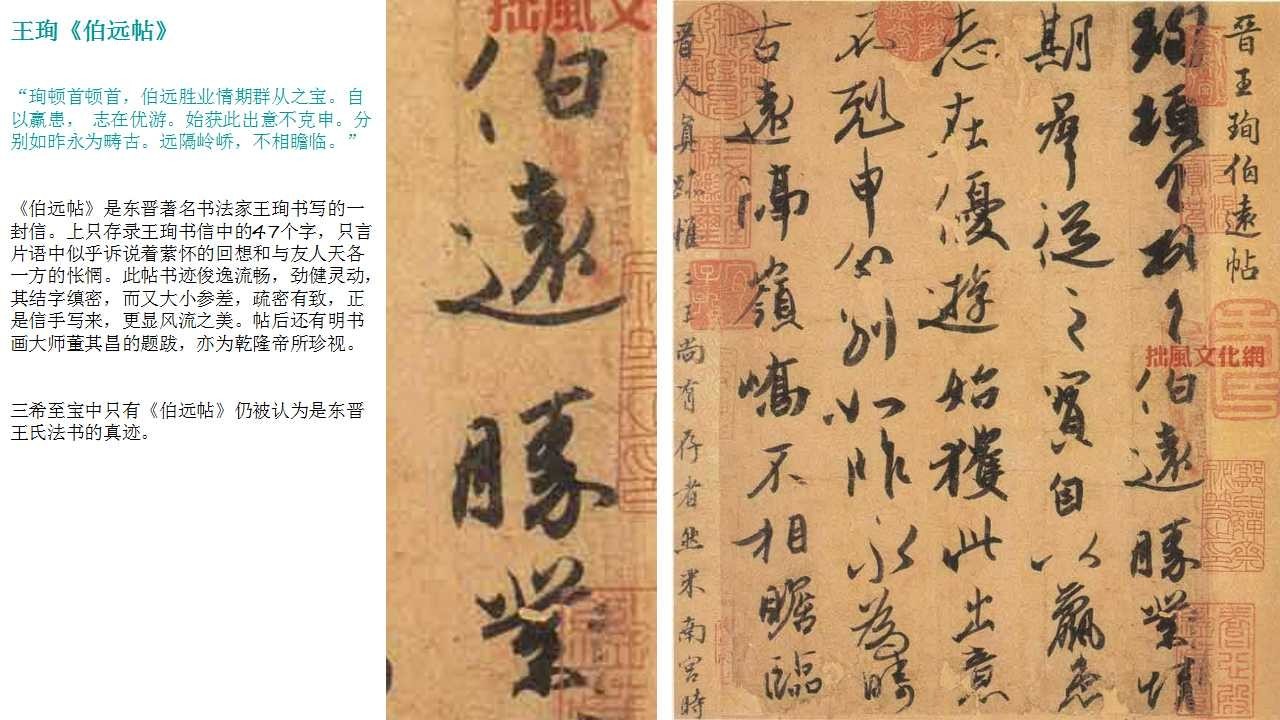 王珣《伯远帖》
“珣顿首顿首，伯远胜业情期群从之宝。自
以羸患， 志在优游。始获此出意不克申。分
别如昨永为畴古。远隔岭峤，不相瞻临。”
《伯远帖》是东晋著名书法家王珣书写的一
封信。上只存录王珣书信中的47个字，只言
片语中似乎诉说着萦怀的回想和与友人天各
一方的怅惘。此帖书迹俊逸流畅，劲健灵动，
其结字缜密，而又大小参差，疏密有致，正
是信手写来，更显风流之美。帖后还有明书
画大师董其昌的题跋，亦为乾隆帝所珍视。
三希至宝中只有《伯远帖》仍被认为是东晋
王氏法书的真迹。
拙風文
伯遠勝業
晉王珣伯遠帖
珣頓首頓首伯遠勝業情
期羣從之寶自以羸患
志在優遊始獲此出意
不剋申分別如昨永為疇
古遠隔嶺嶠不相瞻臨
晉人真跡惟二王尚有存者然米南宮時
拙風文化網